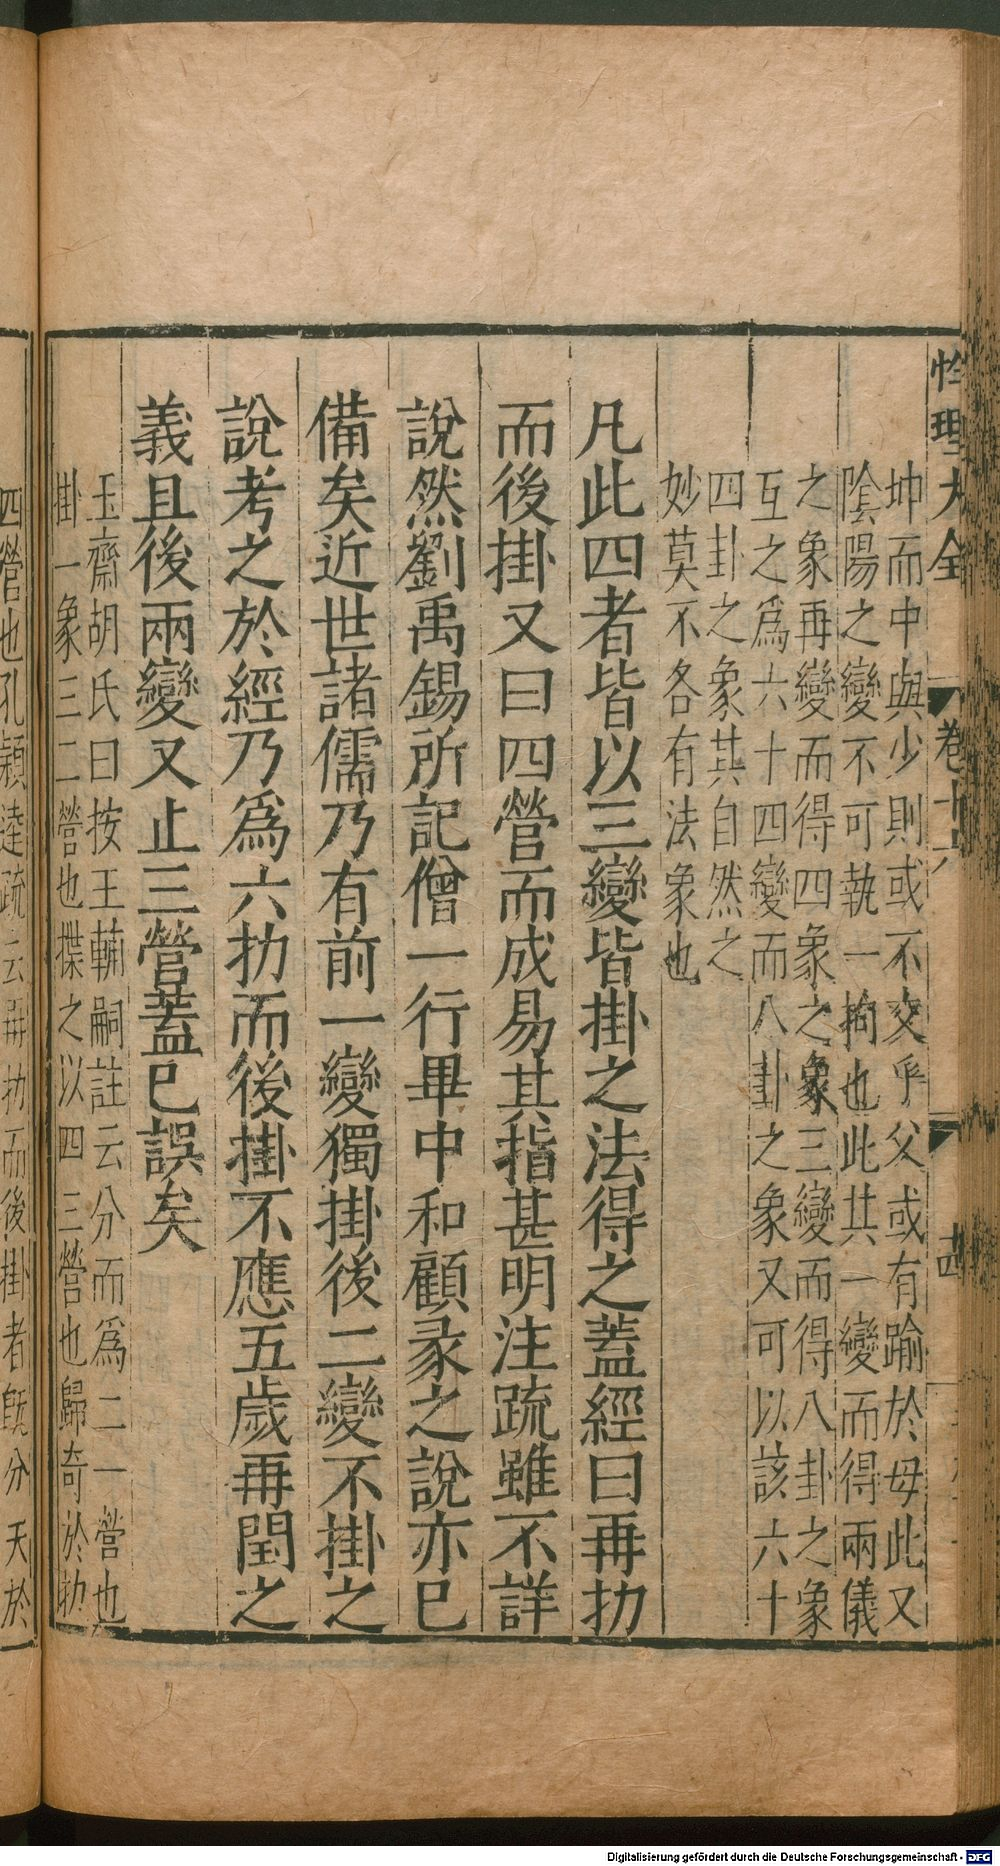 性理大全 卷十六 十四
坤而中與少則或不交乎父或有踰於母此又
陰陽之變不可執一拘也此其一變而得兩儀
之象再變而得四象之象三變而得八卦之象
互之為六十四變而八卦之象又可以該六十
四卦之象其自然之
妙莫不各有法象也
凡此四者皆以三變皆掛之法得之蓋經曰再扐
而後掛又曰四營而成易其指甚明注疏雖不詳
說然劉禹錫所記僧一行畢中和顧彖之說亦已
備矣近世諸儒乃有前一變獨掛後二變不掛之
說考之於經乃為六扐而後掛不應五歲再閏之
義且後兩變又止三營蓋已誤矣
玉齋胡氏曰按王輔嗣註云分而為二一營也
掛一象三二營也揲之以四三營也歸奇於扐
四營也孔穎達疏云再扐而後掛者既分天於
Digitalisierung gefördert durch die Deutsche Forschungsgemeinschaft - DFG